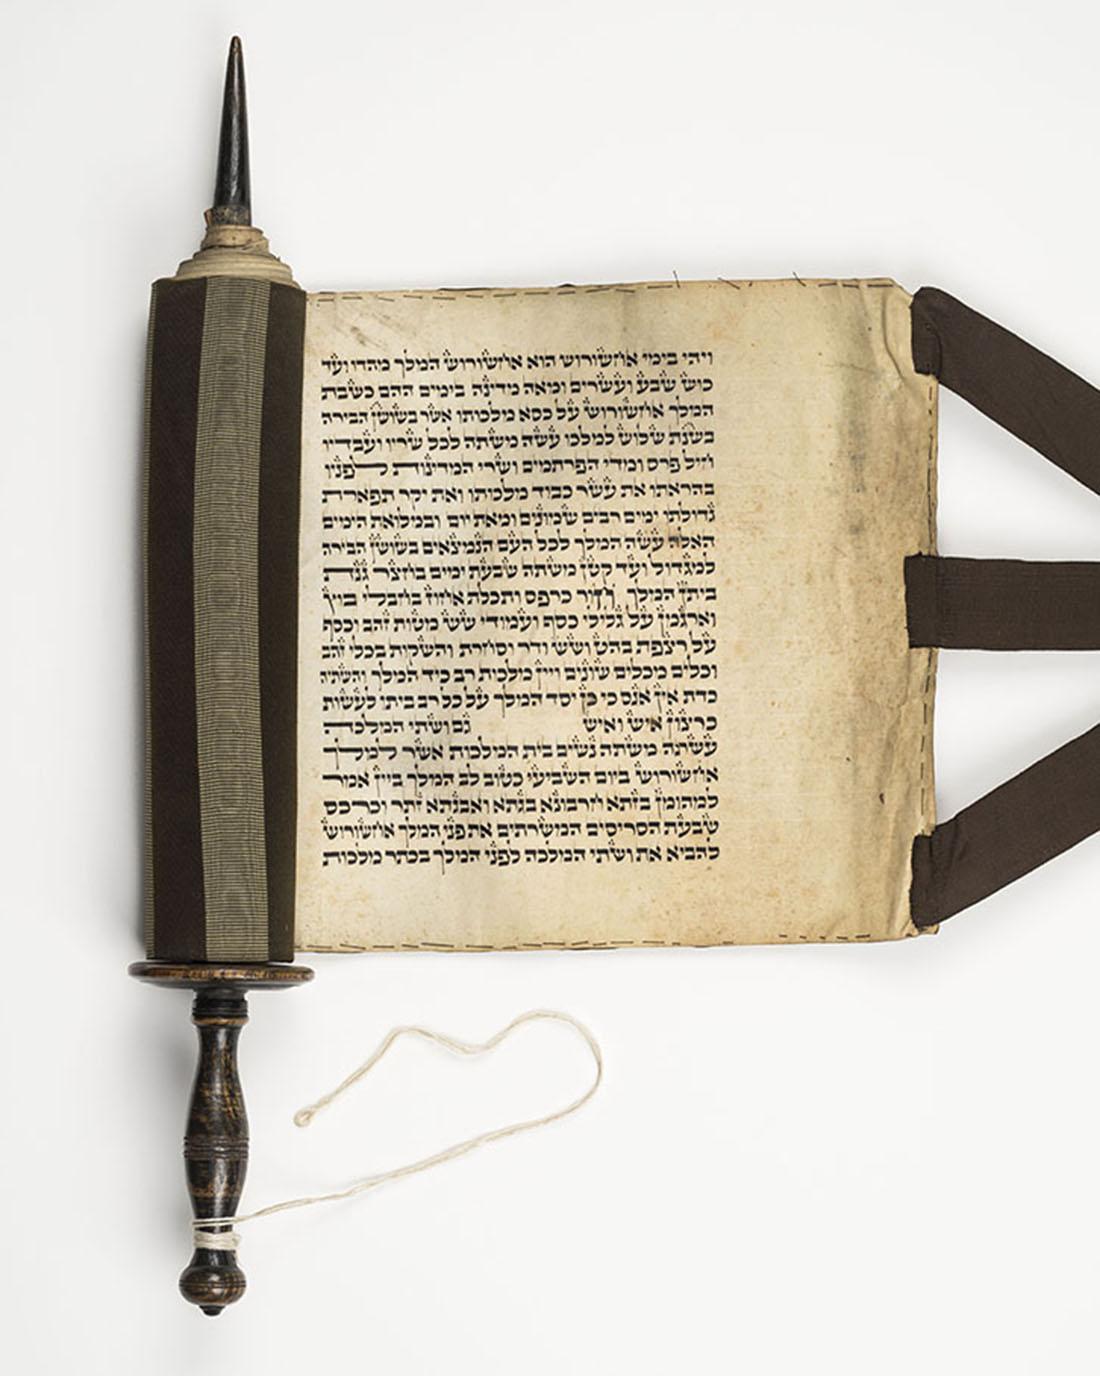 ויהי בימי אחשורוש הוא אחשורוש המלך מהדו ועד
כוש שבע ועשרים ומאה מדינה בימים ההם כשבת
המלך אחשורוש על כסא מלכותו אשר בשושן הבירה
בשנת שלוש למלכו עשה משתה לכל שריו ועבדיו
חיל פרס ומדי הפרתמים ושרי המדינות לפניו
בהראתו את עשר כבוד מלכותו ואת יקר תפארת
גדולתו ימים רבים שמונים ומאת יום ובמלואת הימים
האלה עשה המלך לכל העם הנמצאים בשושן הבירה
למגדול ועד קטן משתה שבעת ימים בחצר גנת
ביתן המלך חור כרפס ותכלת אחוז בחבלי בוץ
וארגמן על גלילי כסף ועמודי שש מטות זהב וכסף
על רצפת בהט ושש ודר וסחרת והשקות בכלי זהב
וכלים מכלים שונים ויין מלכות רב כיד המלך והשתיה
כדת אין אנס כי כן יסד המלך על כל רב ביתו לעשות
כרצון איש ואיש גם ושתי המלכה
עשתה משתה נשים בית המלכות אשר למלך
אחשורוש ביום השביעי כטוב לב המלך ביין אמר
למהומן בזתא חרבונא בגתא ואבגתא זתר וכרכס
שבעת הסריסים המשרתים את פני המלך אחשורוש
להביא את ושתי המלכה לפני המלך בכתר מלכות